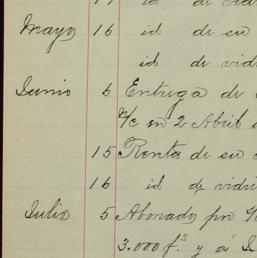 17 id de
Mayo 16 id de su
id de vidri
Junio 6 Entrega de
%c en 2 Abril
15 Renta de su
16 id de vidri
Julio 5 Abonado por
3.000 f.s y á